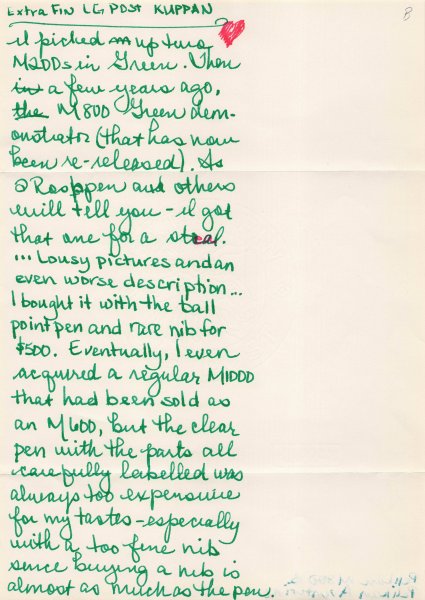 Extra Fin LG POST KUPPAN
8
I picked up two
M200s in Green. Then
in a few years ago,
the M800 Green dem-
onstrator (that has now
been re-released). As
@Rasppen and others
will tell you - I got
that one for a steal.
... Lousy pictures and an
even worse description...
I bought it with the ball
point pen and rare nib for
$500. Eventually, I even
acquired a regular M1000
that had been sold as
an M600, but the clear
pen with the parts all
carefully labelled was
always too expensive
for my tastes - especially
with a too fine nib
since buying a nib is
almost as much as the pen.